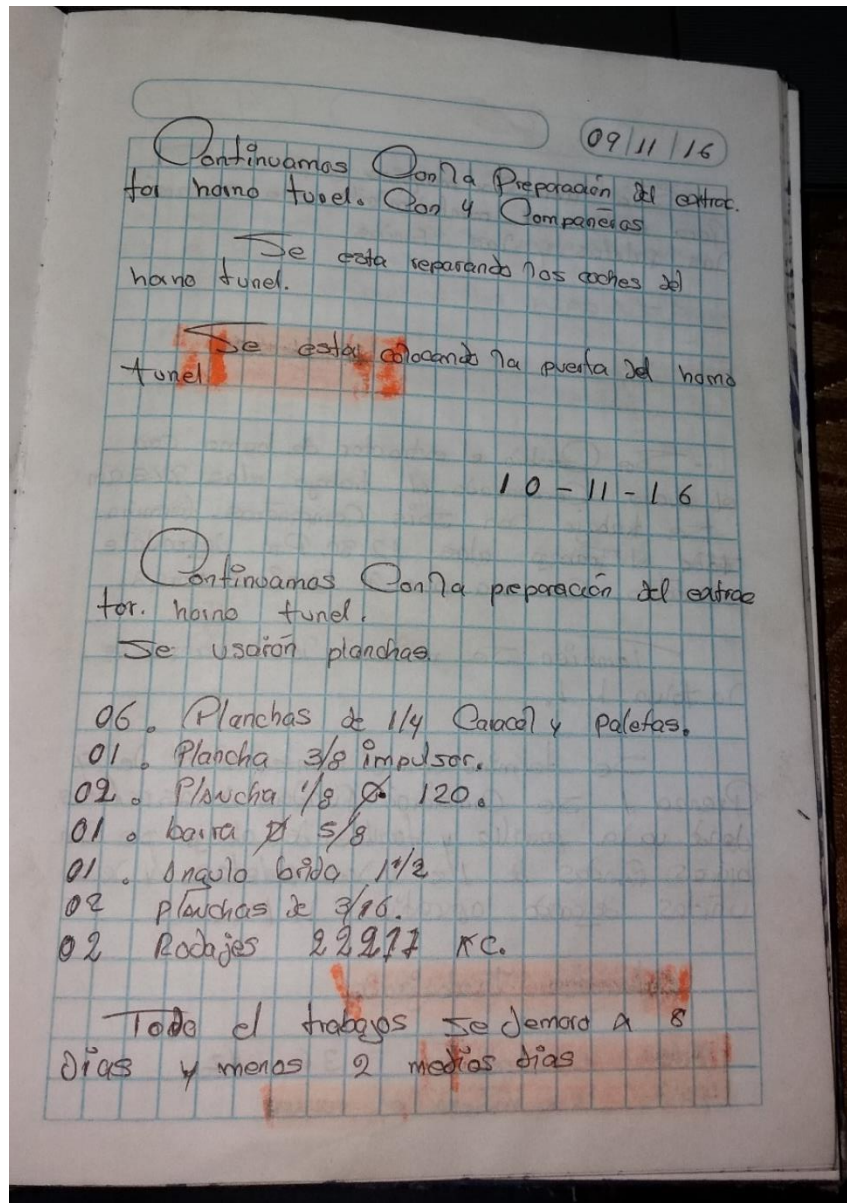 09/11/16
Continuamos Con la Preparación del extrac.
tor horno tunel. Con 4 Compañeros
Se esta reparando los coches del
horno tunel.
Se esta colocando la puerta del horno
tunel
10-11-16
Continuamos Con la preparación del extrac
tor. horno tunel.
Se usarón planchas.
06. Planchas de 1/4 Caracol y paletas.
01. Plancha 3/8 impulsor.
02. Plancha 1/8 Ø 120.
01. barra Ø 5/8
01. Angulo brida 1 1/2
02 planchas de 3/16.
02 Rodajes 22217 KC.
Todo el trabajos se demoro a 8
Dias y menos 2 medios dias